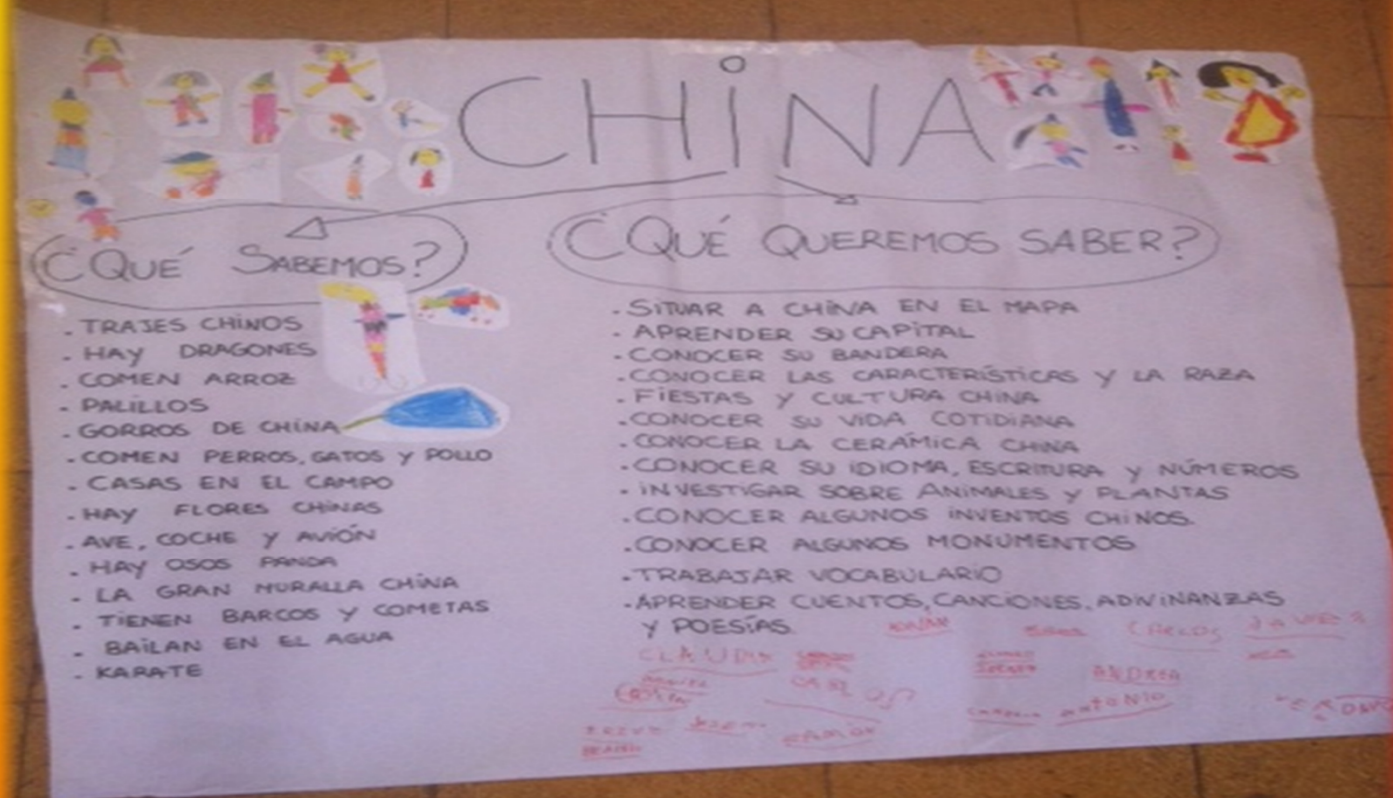 CHiNA
¿QUÉ SABEMOS?
. TRAJES CHINOS
. HAY DRAGONES
. COMEN ARROZ
. PALILLOS
. GORROS DE CHINA
. COMEN PERROS, GATOS Y POLLO
. CASAS EN EL CAMPO
. HAY FLORES CHINAS
. AVE, COCHE Y AVIÓN
. HAY OSOS PANDA
. LA GRAN MURALLA CHINA
. TIENEN BARCOS Y COMETAS
. BAILAN EN EL AGUA
. KARATE
¿QUÉ QUEREMOS SABER?
. SITUAR A CHINA EN EL MAPA
. APRENDER SU CAPITAL
. CONOCER SU BANDERA
. CONOCER LAS CARACTERÍSTICAS Y LA RAZA
. FIESTAS Y CULTURA CHINA
. CONOCER SU VIDA COTIDIANA
. CONOCER LA CERÁMICA CHINA
. CONOCER SU IDIOMA, ESCRITURA Y NÚMEROS
. INVESTIGAR SOBRE ANIMALES Y PLANTAS
. CONOCER ALGUNOS INVENTOS CHINOS.
. CONOCER ALGUNOS MONUMENTOS
. TRABAJAR VOCABULARIO
. APRENDER CUENTOS, CANCIONES, ADIVINANZAS
Y POESÍAS.
CARLOS
CLAUDIA
ANDREA
ANTONIO